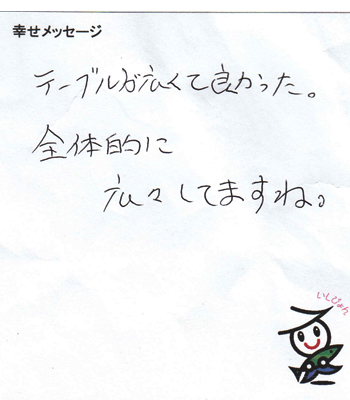 幸せメッセージ
テーブルが広くて良かった。
全体的に
広々してますね。
いしぴょん